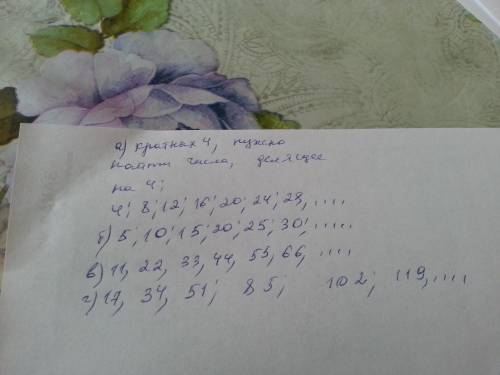 а) кратных 4, нужно
найти числа, делящие
на 4;
4; 8; 12; 16; 20; 24; 28, .....
б) 5; 10; 15; 20; 25; 30; .....
в) 11, 22, 33, 44, 55, 66, .....
г) 17, 34, 51; 85; 102; 119, ....